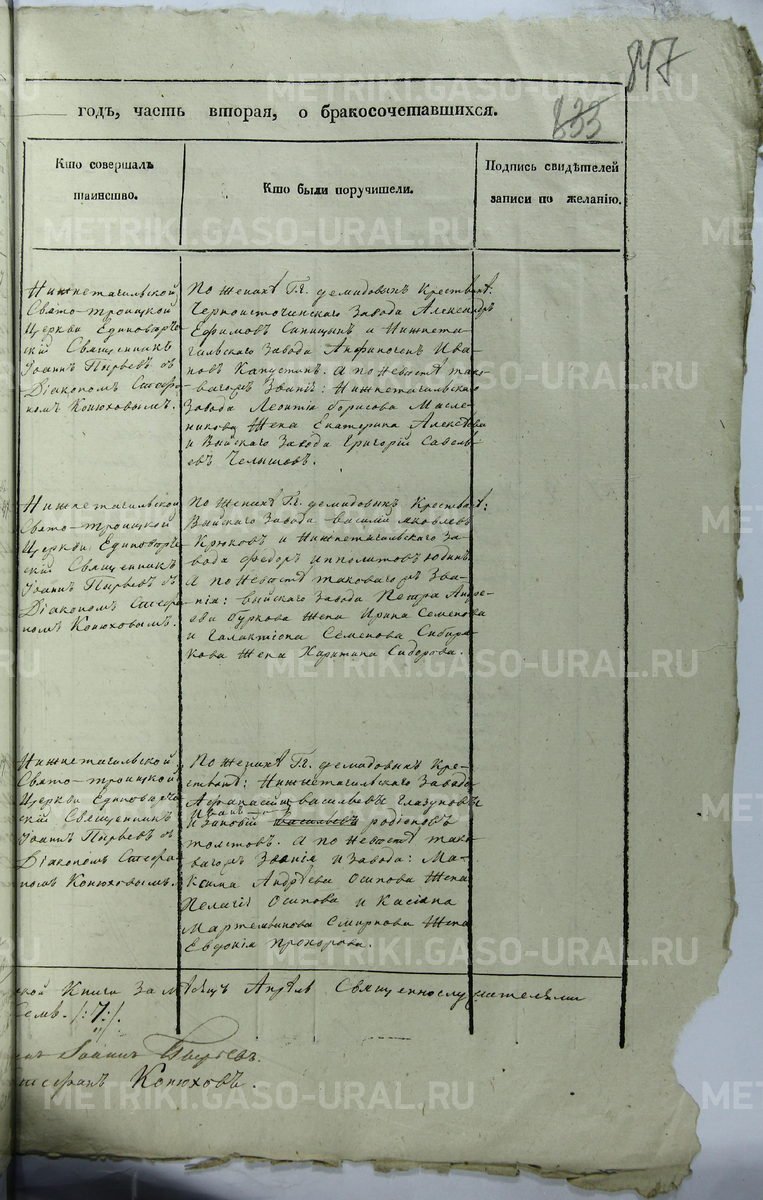 847
833
годъ, часть вторая, о бракосочетавшихся.
Кто совершалъ таинство.
Кто были поручители.
Подпись свидѣтелей записи по желанію.
Нижнетагильской
Свято-троицкой
Церкви Единовѣрче
скій Священникъ
Іоаннъ Пырьевъ съ
Діакономъ Стефа
номъ Конюховымъ.
По женихѣ Г.г. Демидовыхъ Крестьянѣ:
Черноисточинскаго Завода Александръ
Ефимовъ Синицынъ и Нижнета
гильскаго Завода Анфиногенъ Ива
новъ Капустинъ. А по Невѣстѣ тако
вагожъ Званія: Нижнетагильскаго
Завода Леонтія борисова Масле
никова Жена Екатерина Алексѣева
и Выйскаго Завода Григорій Савель
евъ Челышовъ.
Нижнетагильской
Свято-троицкой
Церкви Единовѣрче
скій Священникъ
Іоаннъ Пырьевъ съ
Діакономъ Стефа
номъ Конюховымъ.
По женихѣ Г.г. Демидовыхъ Крестьянѣ:
Выйскаго Завода василій яковлевъ
Крюковъ и Нижнетагильскаго За
вода Федоръ ипполитовъ юдинъ.
А по Невѣстѣ таковагожъ Зва
нія: выйскаго Завода Петра Андре
ева буркова Жена Ирина Семенова
и Галактіона Семенова Сибиря
кова Жена Харитина Сидорова.
Нижнетагильской
Свято-троицкой
Церкви Единовѣрче
скій Священникъ
Іоаннъ Пырьевъ съ
Діакономъ Стефа
номъ Конюховымъ.
По женихѣ Г.г. Демидовыхъ Кре
стьянѣ: Нижнетагильскаго Завода
Афанасій васильевъ Глазуновъ
и Зановій васильевъ родіоновъ
толстовъ. А по Невѣстѣ тако
вагожъ Званія и Завода: Ма
ксима Андрѣева Осипова Жена
Пелагія Осипова и Касіана
Мартемьянова Смирнова Жена
Евдокія Прохорова.
Книги За мѣсяцъ Апрѣль Священнослужителями
Семь. /:7:/.
Іоаннъ Пырьевъ.
Стефанъ Конюховъ.
METRIKI.GASO-URAL.RU